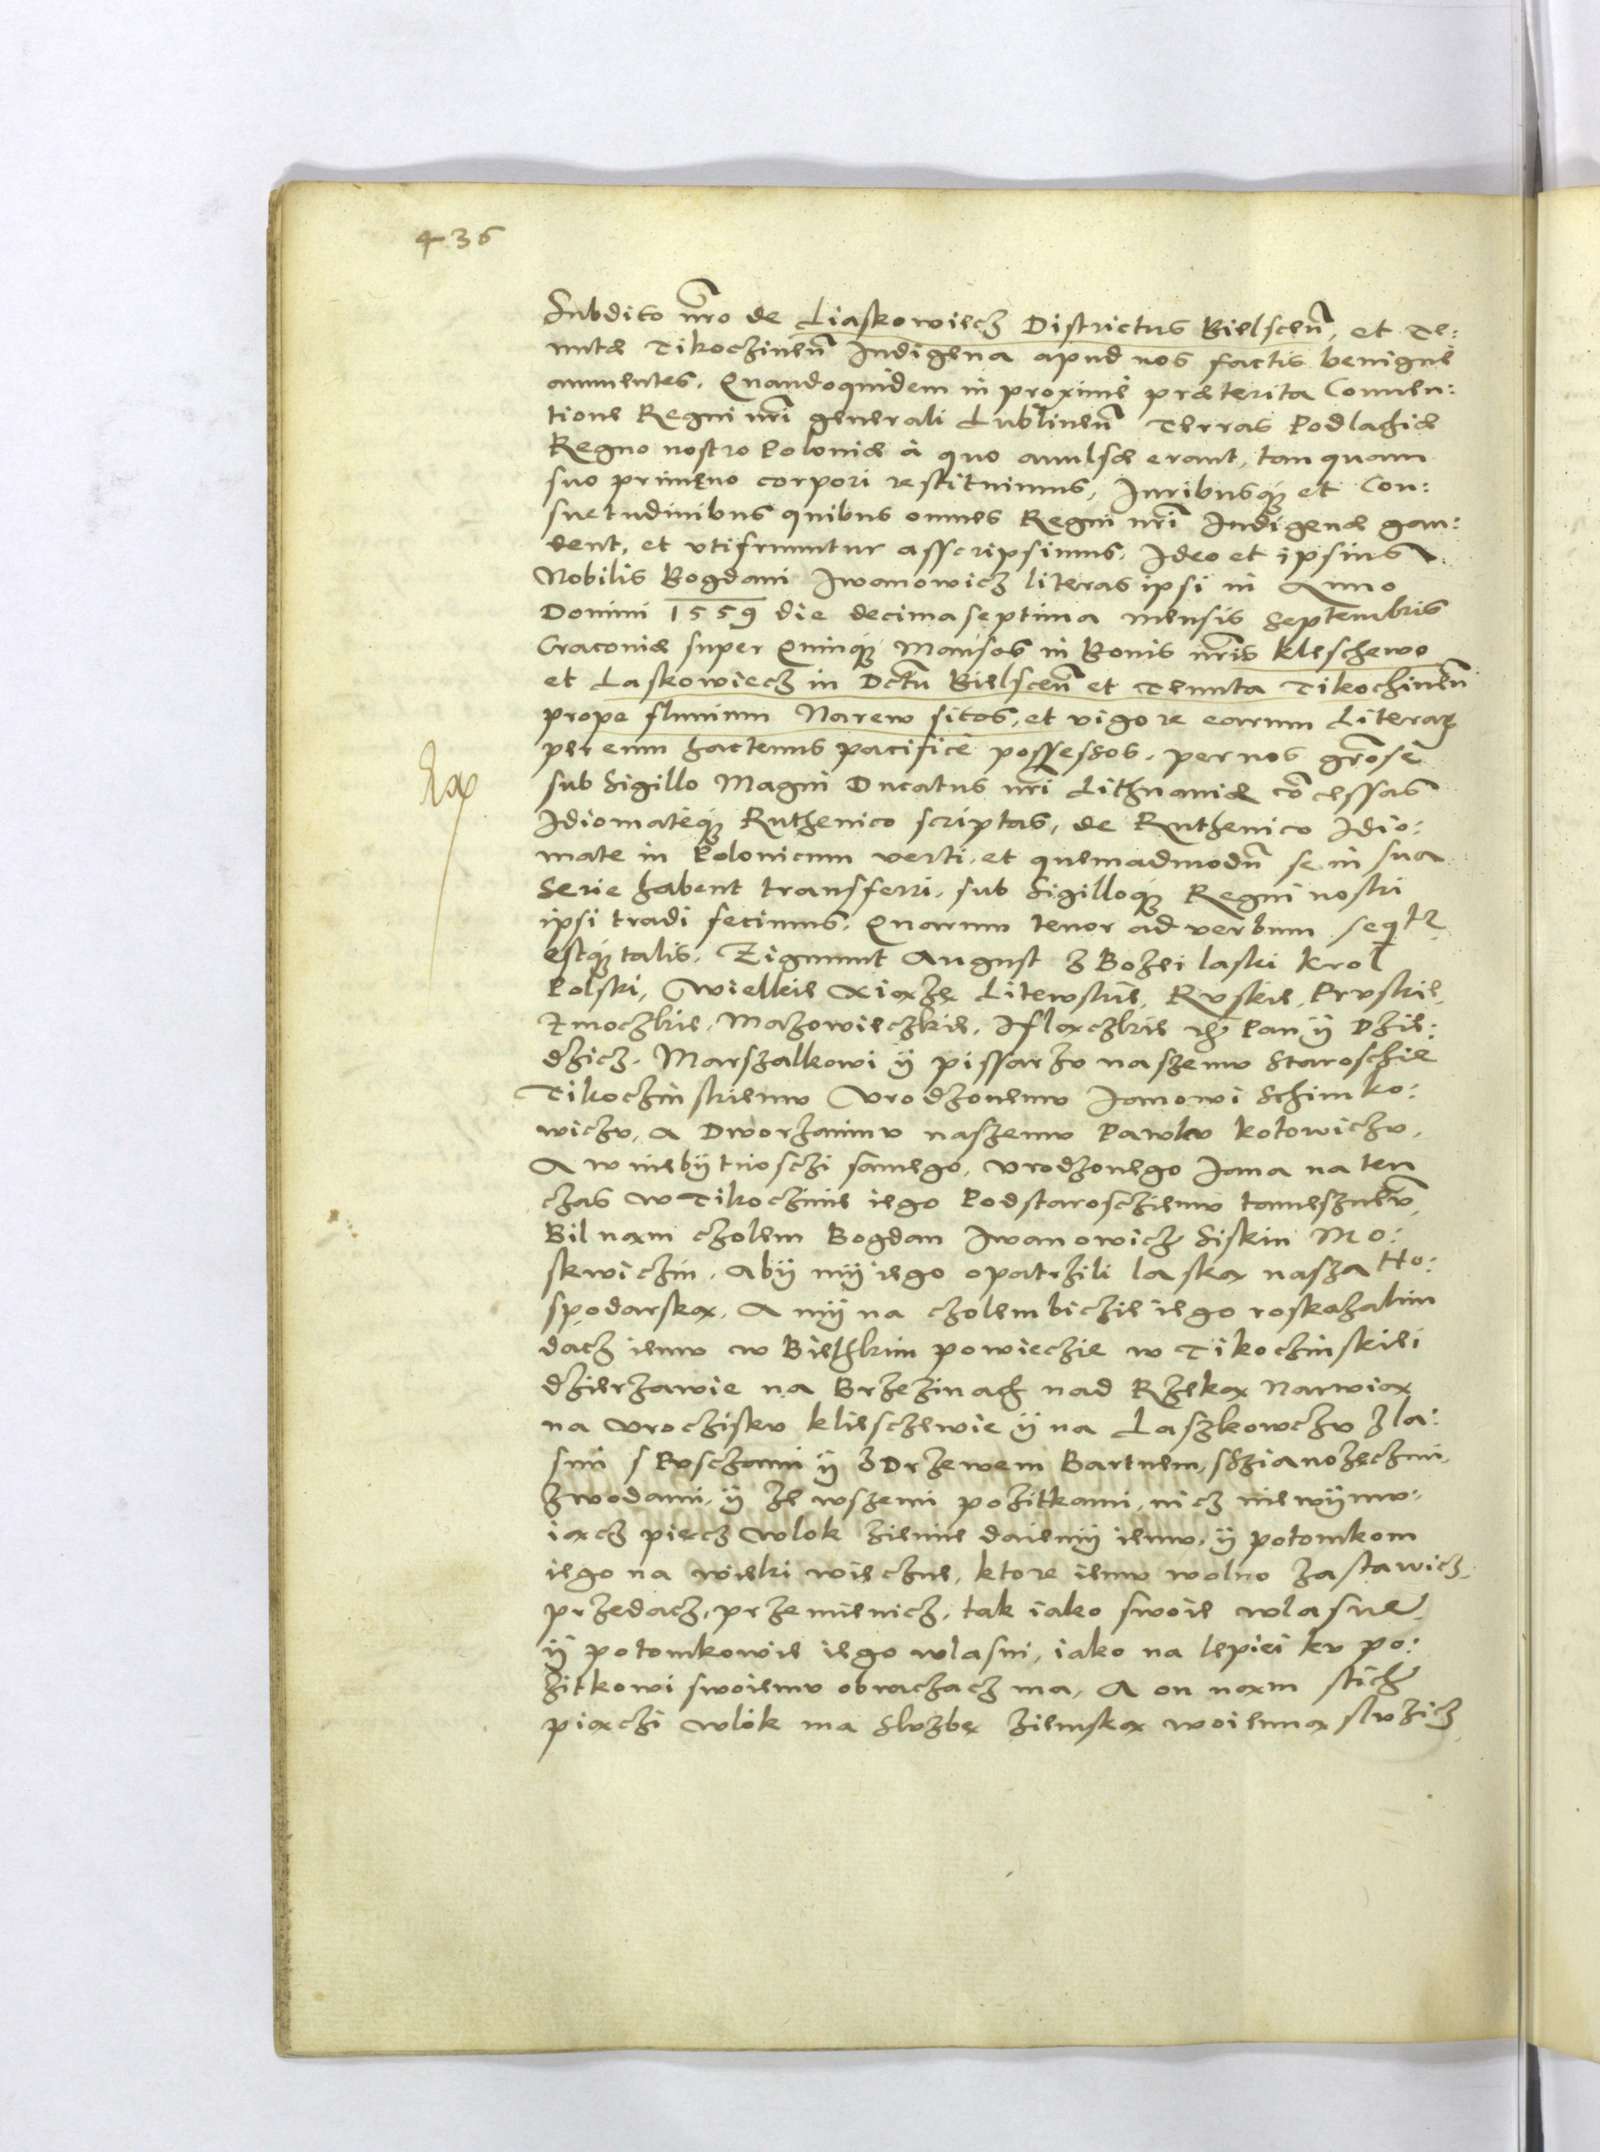 436
Subdito nr̃o de Liaskowiecz Districtus Bielscen̄, et Te:
nutæ Tikoczinen̄ Indigena apud nos factis benigne
annuentes. Quandoquidem in proxime præterita Conuen:
tione Regni nr̃i generali Lublinen̄ Terras Podlachiæ
Regno nostro Poloniæ à quo auulsæ erant, tanquam
suo primæuo corpori restituimus, Iuribusq́ et Con:
suetudinibus quibus omnes Regni nr̃i Indigenæ gau:
dent, et vtifruuntur asscripsimus. Ideo et ipsius
Nobilis Bogdani Iwanowicz literas ipsi in Anno
Domini 1559 die decimaseptima mensis Septembris
Cracouiæ super Quinq́ Mansos in Bonis nr̃is Kleschewo
et Laskowiecz in Dctũ Bielscen̄ et Tenuta Tikochinen̄
prope fluuium Narew sitos, et vigore earum Literar̨
per eum hactenus pacificè possessos. per nos gr̃ose
sub Sigillo Magni Ducatus nr̃i Lithuaniæ cõcessas
Idiomateq́ Ruthenico scriptas, de Ruthenico Idio:
mate in Polonicum verti, et quemadmodũ se in sua
Serie habent transferri. sub Sigilloq́ Regni nostri
ipsi tradi fecimus. Quarum tenor ad verbum seqtr
estq́ talis. Zigmunt August z Bozei laski Krol
Polski, Wielkie Xiązę Litewskie, Ruskie, Pruskie,
Zmoczkie, Mazowieczkie, Iflączkie etc̃ Pan ÿ Dzie:
dzicz. Marszalkowi ÿ pissarzu naszemu Staroschie
Tikoczinskiemu Vrodzonemu Janowi Schimko:
wiczu, A Dworzaninu naszemu Pawlu Kotowiczu.
A w niebÿtnosczi samego, vrodzonego Jana na ten
czas w Tikoczinie iego Podstaroscziemu tamesznem̃,
Bil nam czolem Bogdan Iwanowicz Siskin Mo:
skwiczin. Abÿ mÿ iego opatrzili laską nasza Ho:
spodarską. A mÿ na czolembiczie iego roskazalim
dacz iemu w Bielskim powieczie w Tikoczinskiei
dzierzawie na Brzezinach nad Rzeką Narwią
na vroczisku klieschewie ÿ na Laszkowczu z la:
sni s Pusczami ÿ z Drzewem Bartnem, s Szianozęczmi,
z wodami, ÿ ze wszemi pozitkami, nicz niewÿmu:
iącz piecz wlok ziemie daiemÿ iemu, ÿ potomkom
iego na wieki wieczne, ktore iemu wolno zastawicz,
przedacz, przemienicz, tak iako swoie wlasne
ÿ potomkowie iego wlasni, iako na lepiei ku po:
zitkowi swoiemu obraczacz ma, A on nam stich
piączi wlok ma sluzbę ziemską woienną sluzicz